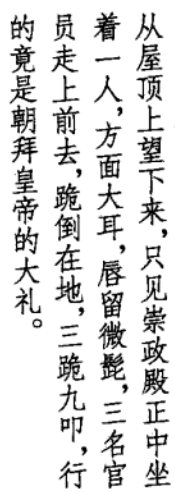 从屋顶上望下来,只见崇政殿正中坐
着一人,方面大耳,唇留微髭,三名官
员走上前去,跪倒在地,三跪九叩,行
的竟是朝拜皇帝的大礼。